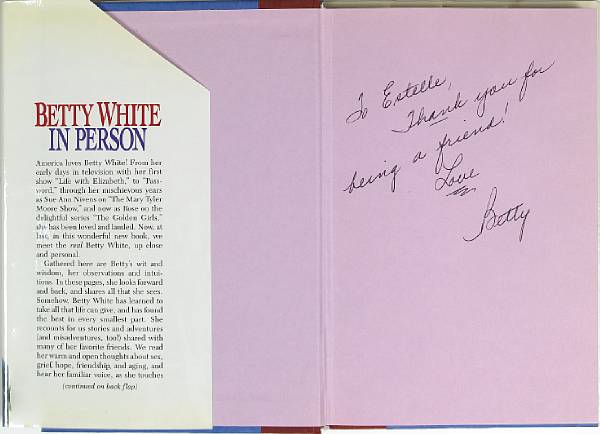 BETTY WHITE
IN PERSON
America loves Betty White! From her
early days in television with her first
show "Life with Elizabeth," to "Pass-
word," through her mischievous years
as Sue Ann Nivens on "The Mary Tyler
Moore Show," and now as Rose on the
delightful series "The Golden Girls,"
she has been loved and lauded. Now, at
last, in this wonderful new book, we
meet the real Betty White, up close
and personal.
Gathered here are Betty's wit and
wisdom, her observations and intui-
tions. In these pages, she looks forward
and back, and shares all that she sees.
Somehow, Betty White has learned to
take all that life can give, and has found
the best in every smallest part. She
recounts for us stories and adventures
(and misadventures, too!) shared with
many of her favorite friends. We read
her warm and open thoughts about sex,
grief, hope, friendship, and aging, and
hear her familiar voice, as she touches
(continued on back flap)
To Estelle,
Thank you for
being a friend!
Love
Betty